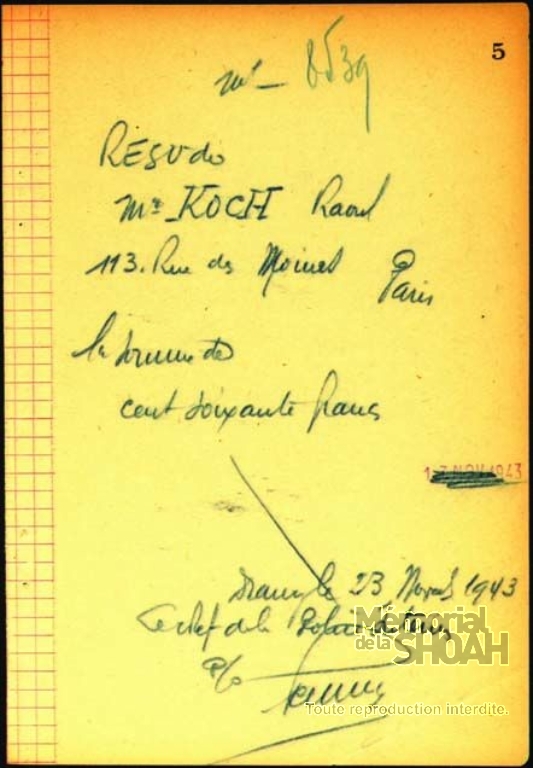 5
N° 8539
RESU de
Mr KOCH Raoul
113. Rue des Moines Paris
la somme de
cent soixante francs
1 NOV 1943
Drancy le 23 Novemb 1943
Le chef de la Police du Camp
P/o
Mémorial
de la SHOAH
Toute reproduction interdite.